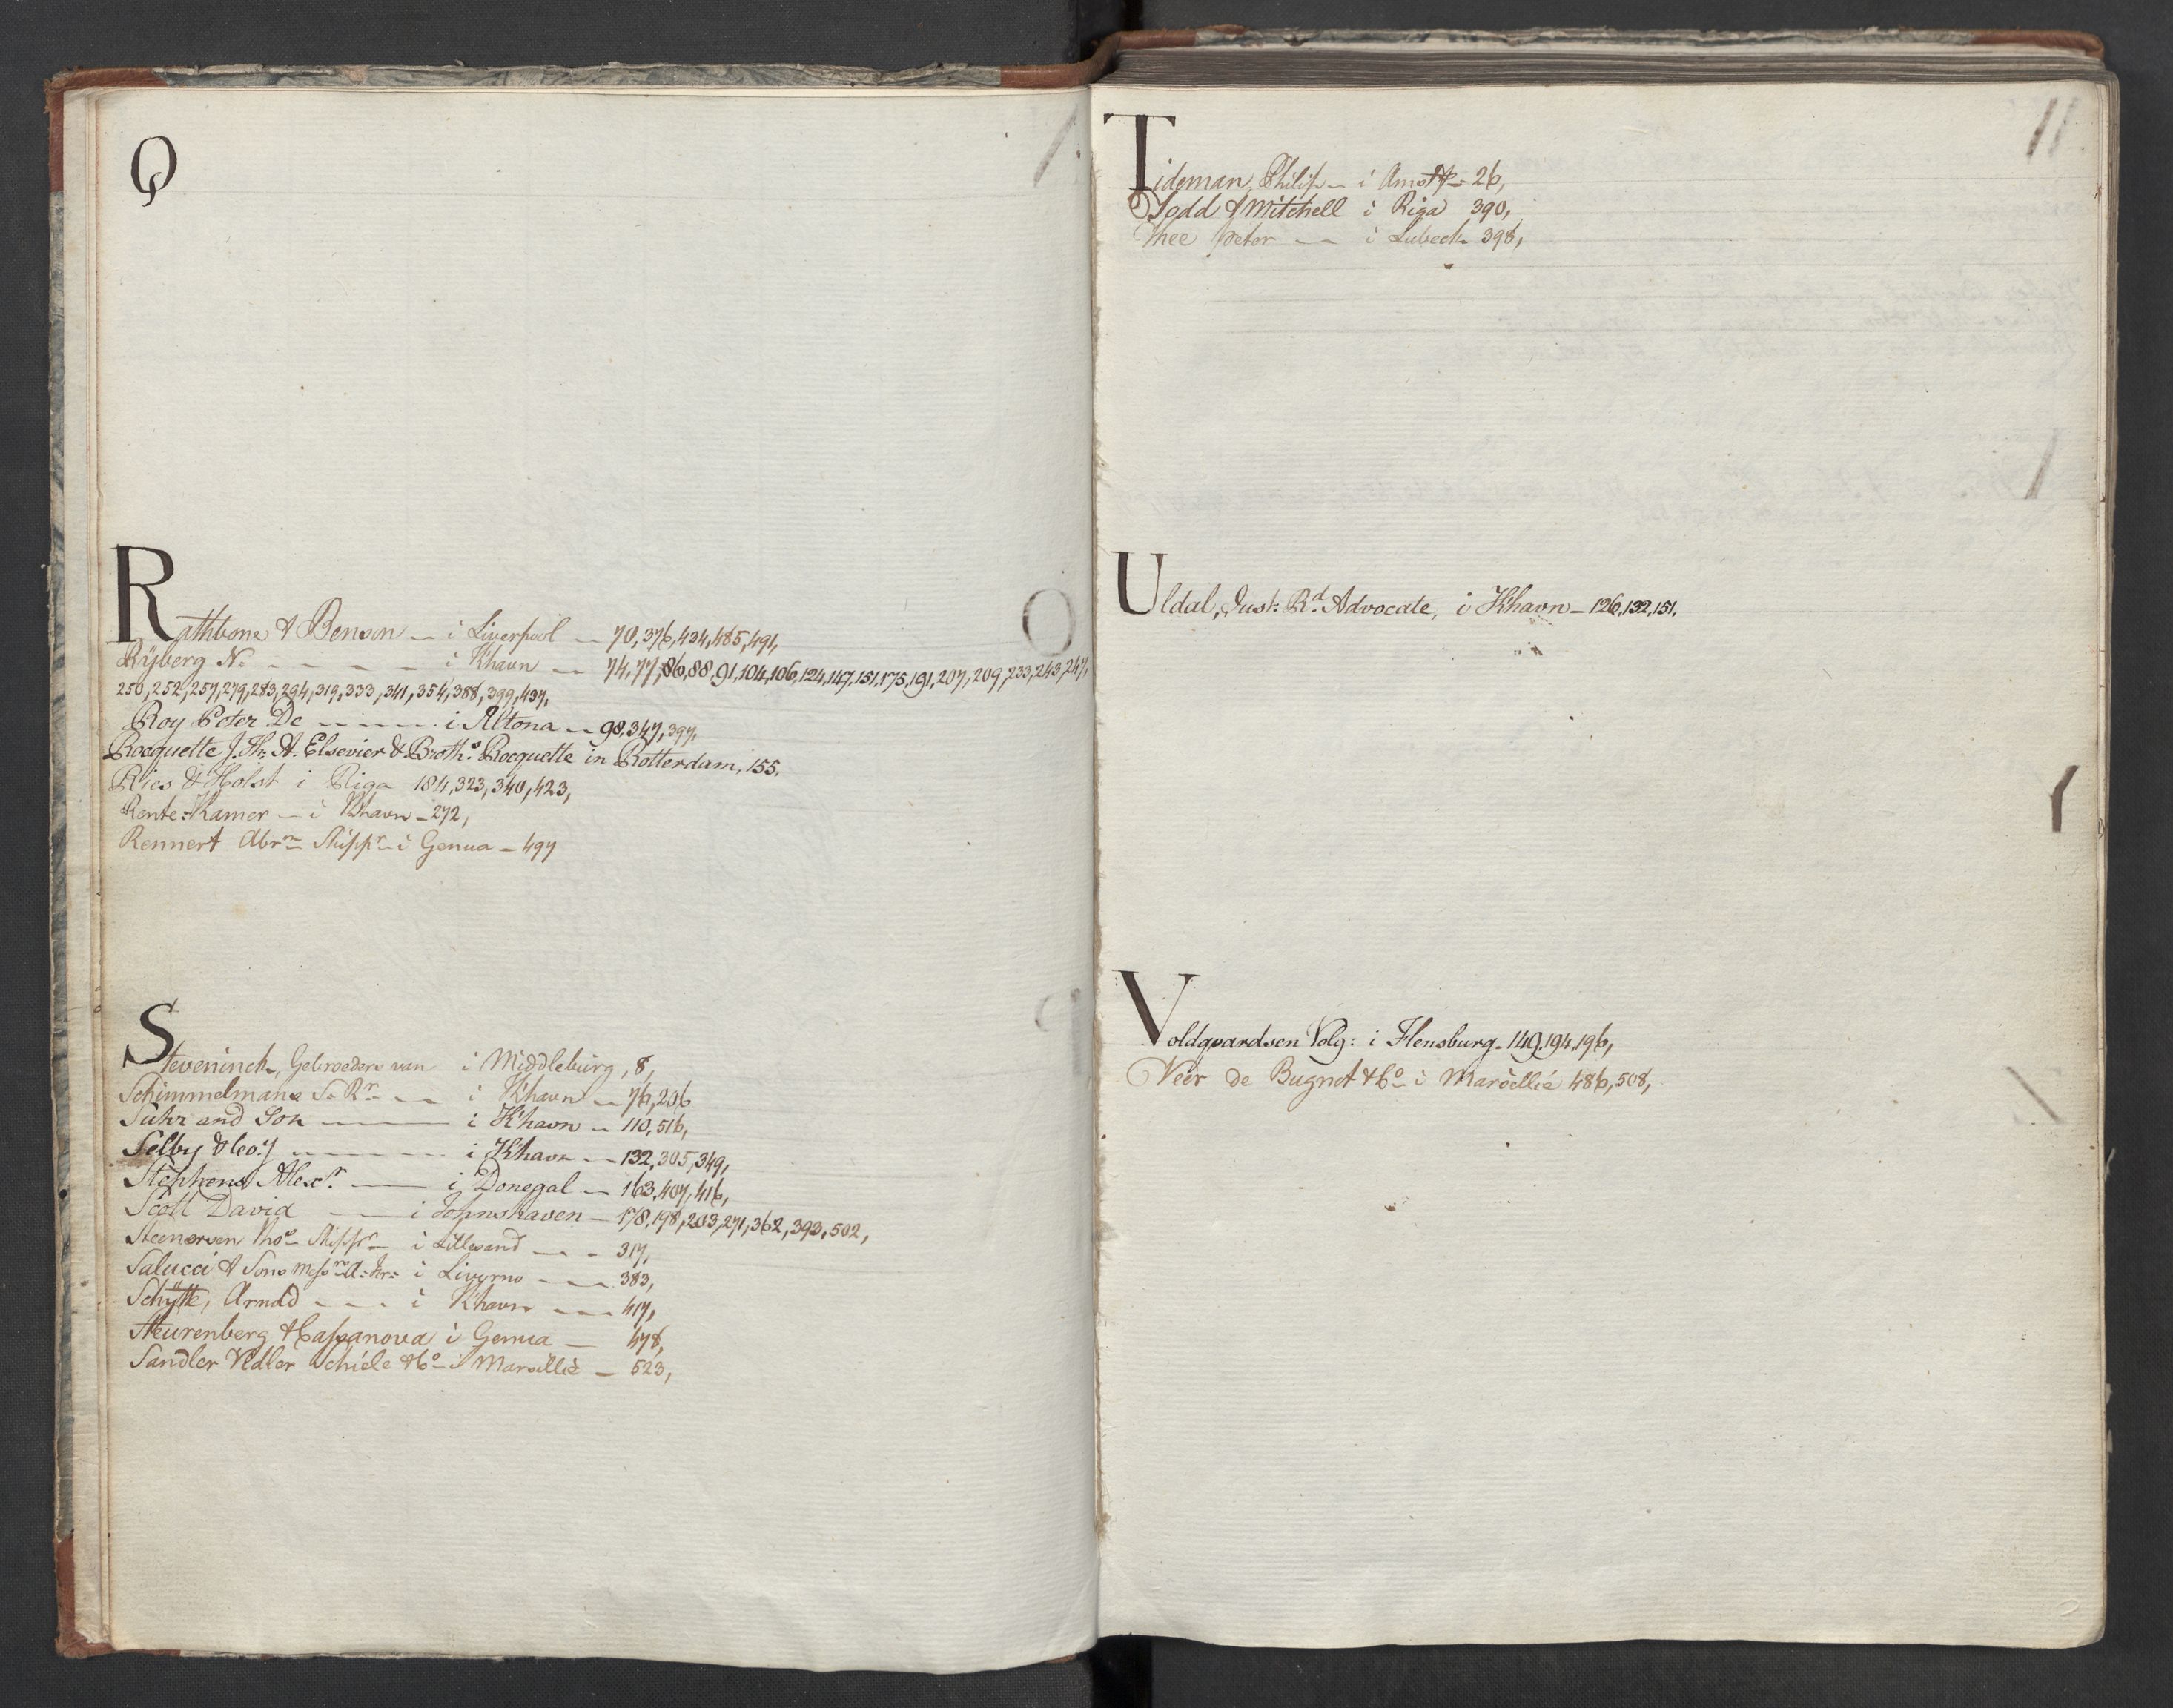 Q
Rathbone & Benson — i Liverpool — 70, 376, 434, 485, 491,
Rÿberg N. — — — — i Khavn — 74, 77, 86, 88, 91, 104, 106, 124, 147, 151, 175, 191, 207, 209, 233, 243, 247,
250, 252, 257, 279, 283, 294, 319, 333, 341, 354, 388, 399, 437,
Roy Peter De — — — i Altona — 98, 347, 397,
Rocquette J. Th. A. Elsevier & Broths. Rocquette in Rotterdam, 155.
Ries & Holst i Riga 184, 323, 340, 423,
Rente-Kamer — i Khavn — 272,
Rennert Abrm Skippr i Genua — 497
Steveninck, Gebroeders van i Middleburg, 8,
Schimmelmans S. Rr — — i Khavn — 76, 206
Suhr and Son — i Khavn — 110, 516,
Selby & Coy — — — i Khavn — 132, 305, 349,
Stephens Alexr. — i Donegal — 163, 407, 416,
Scott David — i Johnshaven — 178, 198, 203, 271, 362, 393, 502,
Steenersen Thos Skippr i Lillesand — — 317,
Salucci & Sons Messrs i Livorno — — 383,
Schÿtte, Arnold — — i Khavn — — 417,
Steurenberg & Cassanova i Genua — 478,
Sandler Vidler Schiele & Co i Marsillie — 523,
Tideman, Philip — i Amst — 26,
Todd & Mitchell i Riga 390,
Thee Peter — — i Lubeck 398,
Uldal, Just: Rd. Advocate, i Khavn — 126, 132, 151.
Voldqvardsen Volq: i Flensburg — 149, 194, 196,
Veër de Bugnot & Co i Marsellie 486, 508,